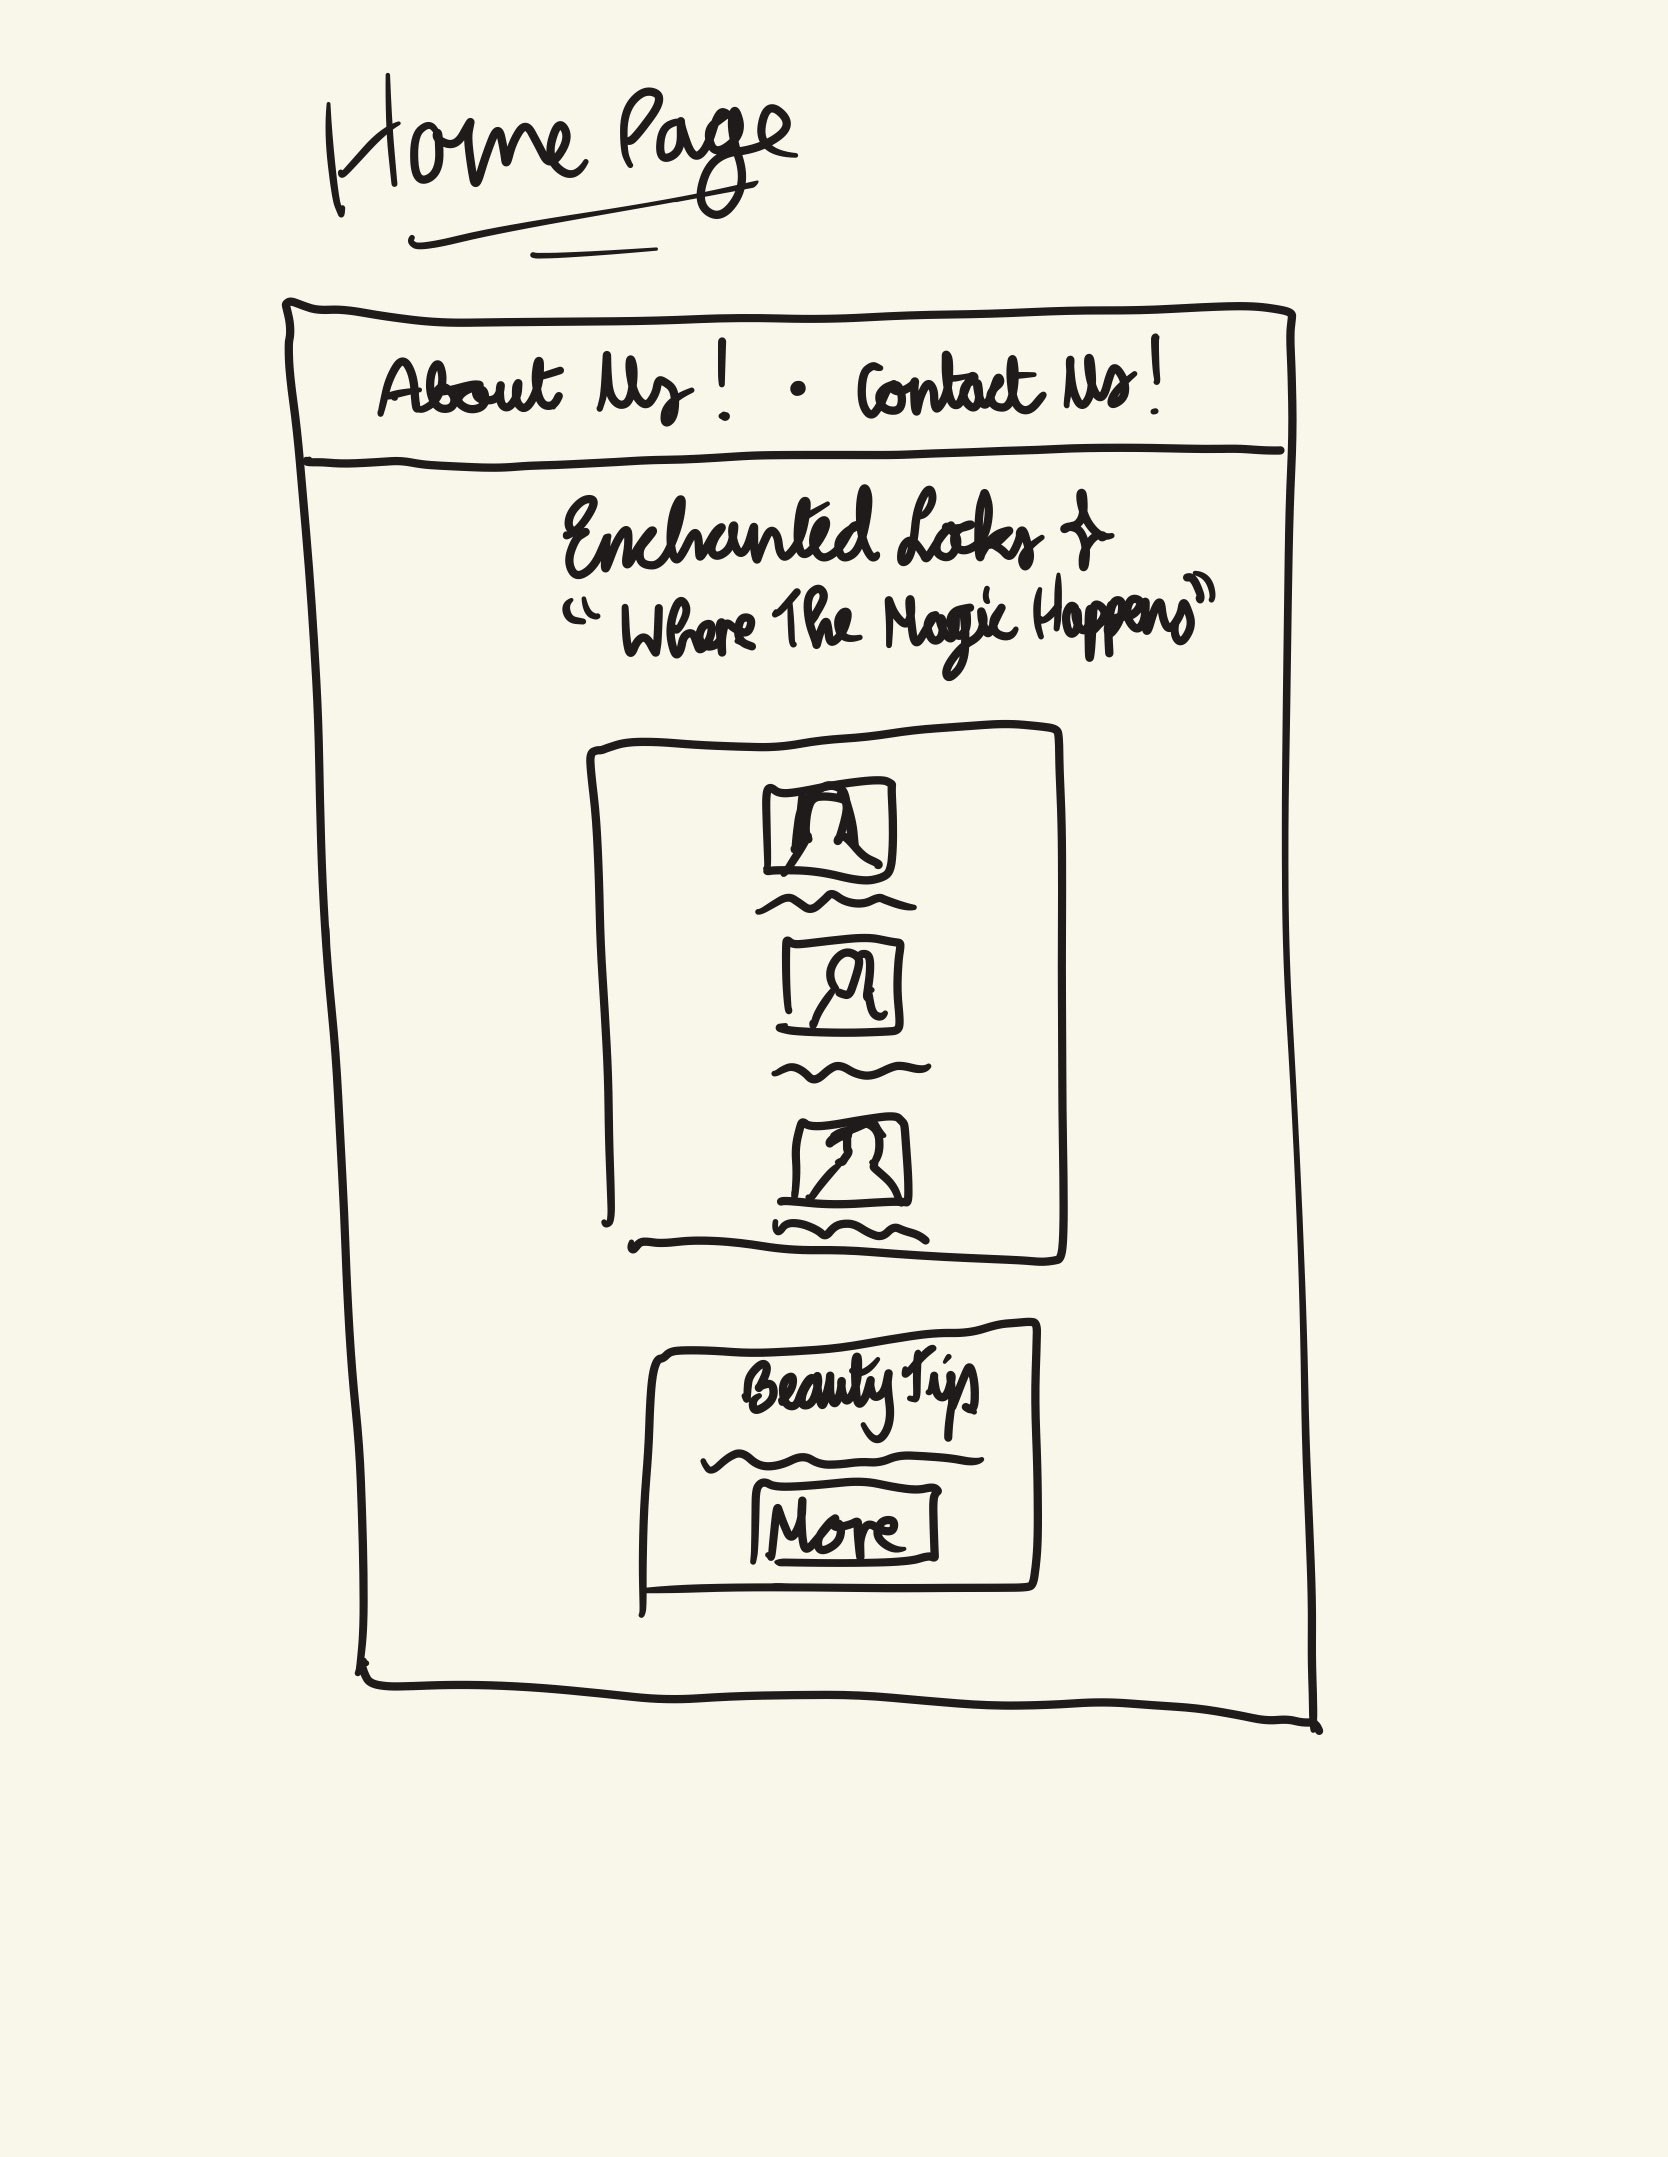 Home Page
About Us! • Contact Us!
Enchanted Locks
"Where The Magic Happens"
Beauty Tips
More